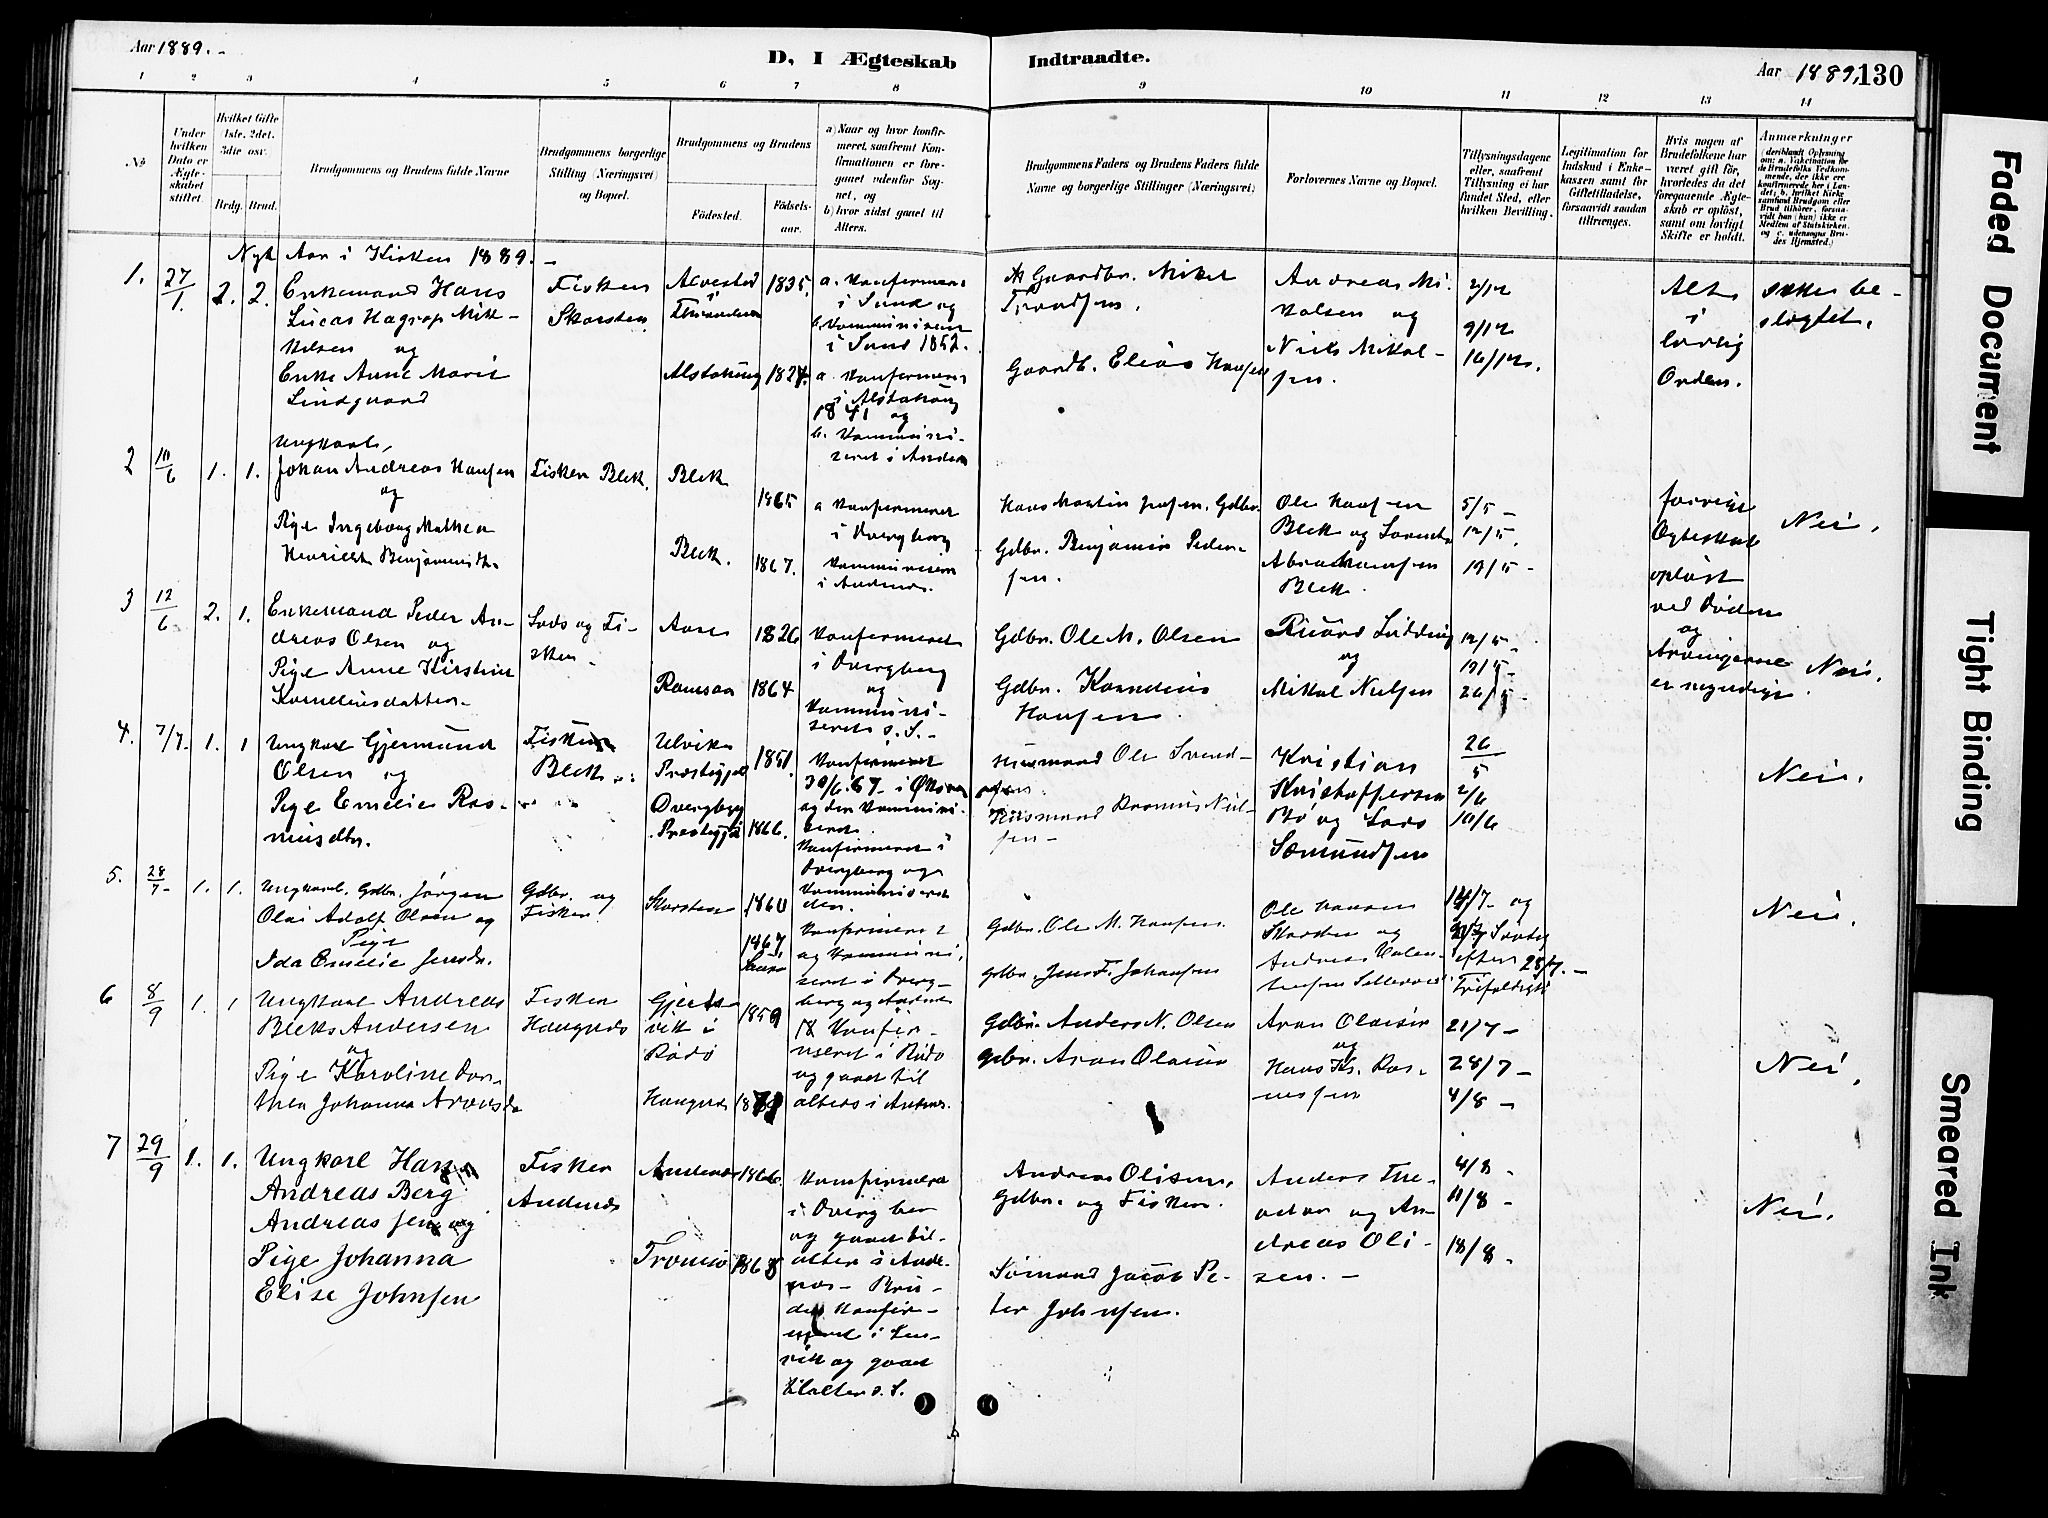 Aar 1889.-
D, I Ægteskab Indtraadte.
Aar 1889, 130
1 2 3 4 5 6 7 8 9 10 11 12 13 14
No
Under hvilken Dato er Ægteskabet stiftet.
Hvilket Gifte (1ste, 2det, 3die osv.
Brdg. Brud.
Brudgommens og Brudens fulde Navne
Brudgommens borgerlige Stilling (Næringsvei) og Bopæl.
Brudgommens og Brudens
Födested.
Födselsaar.
a) Naar og hvor konfirmeret, saafremt Konfirmationen er foregaaet udenfor Sognet, og
b) hvor sidst gaaet til Alters.
Brudgommens Faders og Brudens Faders fulde Navne og borgerlige Stillinger (Næringsvei)
Forlovernes Navne og Bopæl.
Tillysningsdagene eller, saafremt Tillysning ei har fundet Sted, efter hvilken Bevilling.
Legitimation for Indskud i Enkekassen samt for Giftetilladelse, forsaavidt saadan tiltrænges.
Hvis nogen af Brudefolkene har været gift för, hvorledes da det foregaaende Ægteskab er oplöst, samt om lovligt Skifte er holdt.
Anmærkninger
(deriblandt Oplysning om: a. Vakcination for de Brudefolks Vedkommende, der ikke ere konfirmerede her i Landet; b. hvilket Kirkesamfund Brudgom eller Brud tilhörer, forsaavidt han (hun) ikke er Medlem af Statskirken, og c. udensogns Brudes Hjemsted.)
Nyt Aar i Kirken 1889.-
1. 27/1 2. 2.
Enkemand Hans
Lucas Hagrop Mik-
kelsen og
Enke Anne Marit
Lindgaard
Fisker
Skarsten
Alvestad
i
1835.
Alstahoug 1824.
a. Konfirmeret
i Sand og
b. Kommuniseret
i Sand 1852.
a. Konfirmeret
i Alstahoug
1841 og
b. Kommuni-
seret i Andenes
Gaardbr. Mikel
Trondsen.
Gaardb. Elias Hansen
Andreas Mi-
kalsen og
Niels Mikal-
sen.
2/12
9/12
16/12.
Alt
i
lovlig
Orden.
ikke be-
slegtet.
2 10/6 1. 1.
Ungkarl,
Johan Andreas Hansen
og
Pige Ingeborg Mathea
Henriette Benjaminsdt.
Fisker Blek.
Blek
Blek.
1865
1867.
a Konfirmeret
i Dvergberg
Kommuniseret
i Andenes.
Hans Martin Jensen. Gdbr.
Gdbr. Benjamin Peder-
sen.
Ole Hansen
Blek og Lorents
Abrahamsen
Blek.
5/5 -
12/5.
19/5 -
forrige
Egteskab
oplöst
ved Döden
og
Arvingerne
er myndige.
Nei.
3 12/6 2. 1.
Enkemand Peder An-
dreas Olsen og
Pige Anne Kirstine
Korneliusdatter.
Lods og Fi-
sker.
Aase
Ramsaa
1826
1864
Konfirmeret
i Dvergberg
og
Kommuni-
seret s. S.-
Gdbr. Ole M. Olsen
Gdbr. Kornelius
Hansen
og
Mikal Nielsen
12/5 -
19/5 -
26/5 -
Nei.
4. 7/7. 1. 1
Ungkarl Gjermund
Olsen og
Pige Emelie Ras-
musdtr.
Fisker
Blek
Ulvik
Prestegjeld
Dvergberg
Prestegjd
1851.
1866.
Konfirmeret
30/6.67. i
og der Kommuni-
seret.
Konfirmeret i
Dvergberg og
Kommuniseret
der.
Husmand Ole Svend-
sen.
Husmand Rasmus Niel-
sen-
Kristian
Kristoffersen
Bö og Lars
Sæmundsen
26/5
2/6
10/6
Nei.
5. 28/7 1. 1.
Ungkarl. Gdbr. Jörgen
Olai Adolf Olsen og
Pige
Ida Emelie Jensdr.
Gdbr. og
Fisker
Skarsten
1860
1867
Konfirmeret
og Kommuni-
seret i Dverg-
berg og Andenes
Gdbr. Ole M. Hansen.
gdbr. Jens F. Johansen
Ole Hansen
Skarsten og
Andreas
14/7 - og
efter 28/7. -
Trifoldigh
Nei.
6 8/9 1. 1
Ungkarl Andreas
Bleks Andersen
og
Pige Karoline Dor-
thea Johanna Aronsda
Fisker
Haugnes
vik i
Rödö
Haugnes
1859
Konfir-
meret i Rödö
og gaaet til
alters i Andenes.
Gdbr. Anders N. Olsen
gdbr. Aron Olaisen
Aron Olaisen
og
Hans Kr. Ras-
mussen
21/7 -
28/7 -
4/8 -
Nei.
7 29/9 1. 1.
Ungkarl Hans
Andreas Berg
Andreassen og
Pige Johanna
Elise Johnsen
Fisker
Andenes
Andenes
Tromsö
1866.
1868
Konfirmeret
i Dvergber
og gaaet til
alters i Ande-
nes - Bru-
den Konfir-
meret i Len-
vik og gaaet
til alters s. S.
Andreas Olisen,
Gdbr. og Fisker.
Sömand Jacob Pe-
ter Johnsen.
Anders The-
odor og An-
dreas Oli-
sen. -
4/8 -
11/8 -
18/8 -
Nei.
Faded Document
Tight Binding
Smeared Ink